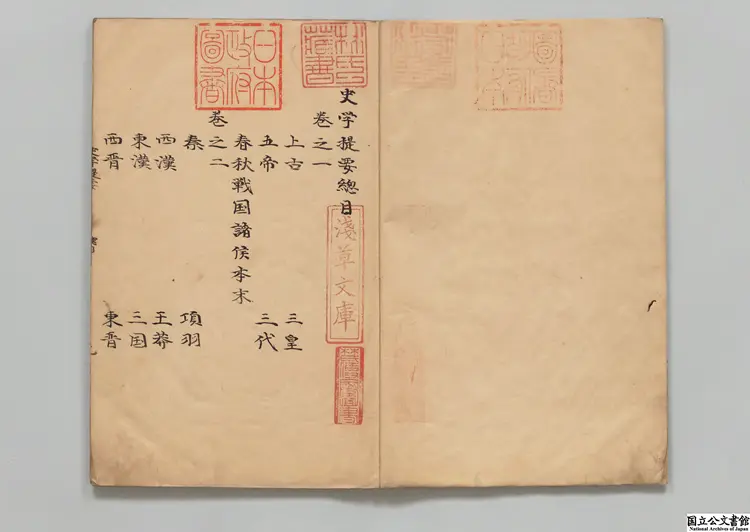 史学提要總目
巻之一
上古 三皇
五帝 三代
春秋戦国諸侯本末
巻之二
秦 項羽
西漢 王莽
東漢 三国
西晋 東晋
日本政府圖書
林氏藏書
淺草文庫
国立公文書館
National Archives of Japan